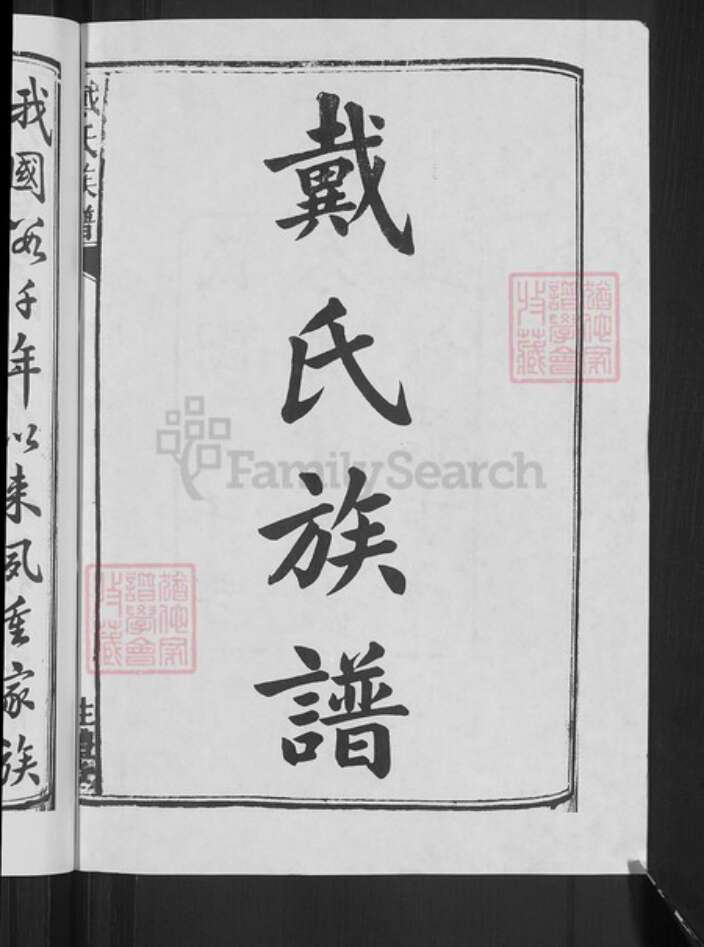 戴氏族譜
戴氏族譜
我國數千年以來夙重家族
猶他家
譜學會
收藏
猶他家
譜學會
收藏
FamilySearch